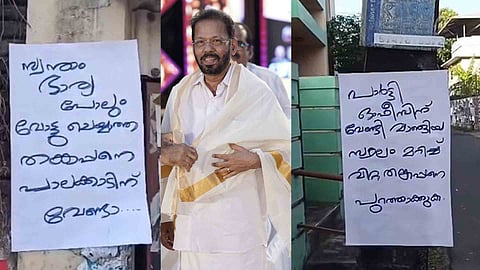 സ്വന്തം
ഭാര്യ
പോലും
വോട്ടു ചെയ്യാത്ത
തങ്കപ്പനെ
പാലക്കാട്ടിന്
വേണ്ടാ....
പാർട്ടി
ഓഫീസിന്
വേണ്ടി വാങ്ങിയ
സ്ഥലം മറിച്ച്
വിറ്റ തങ്കപ്പനെ
പുറത്താക്കുക.